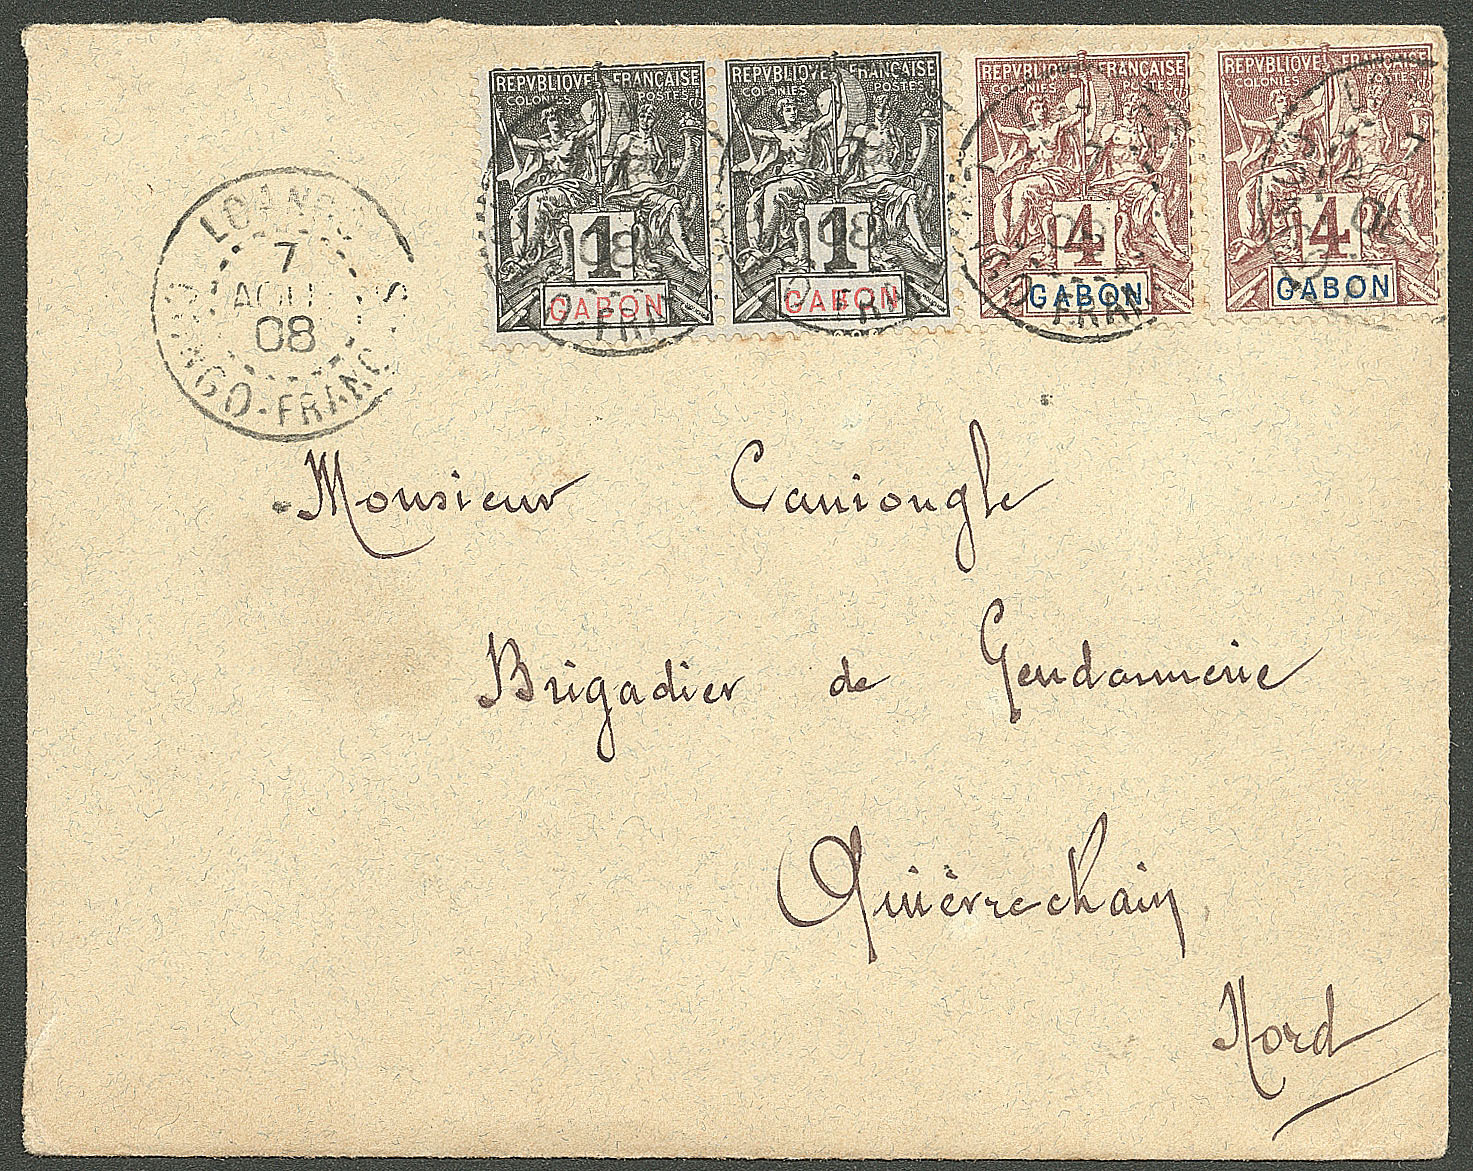 REPVBLIQVE FRANÇAISE REPVBLIQVE FRANÇAISE REPVBLIQVE FRANÇAISE REPVBLIQVE FRANÇAISE
COLONIES POSTES COLONIES POSTES COLONIES POSTES COLONIES
1 1 4 4
GABON GABON GABON GABON
LOANGO
7
AOU
08
CONGO-FRANÇAIS
Monsieur Caniongle
Brigadier de Gendarmerie
Quièvrechain
Nord